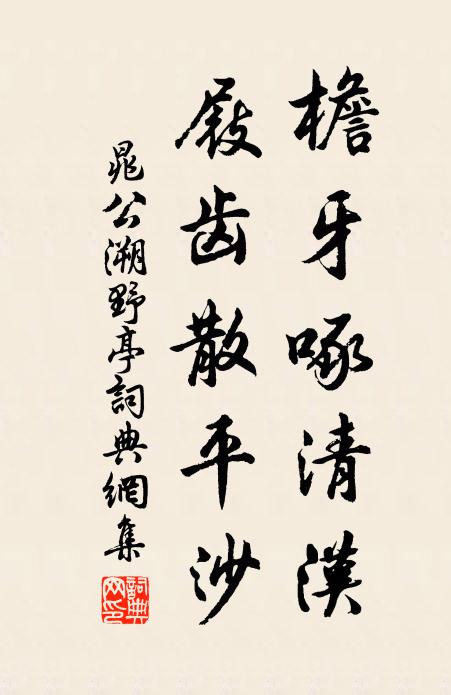 檐牙啄清漢
屐齿散平沙
晁公溯野亭詞典網集
詞典網印